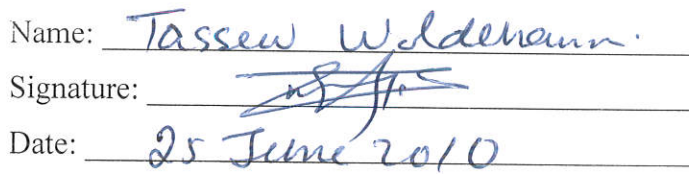 Name: Tassew Woldehanna.
Signature:
Date: 25 June 2010